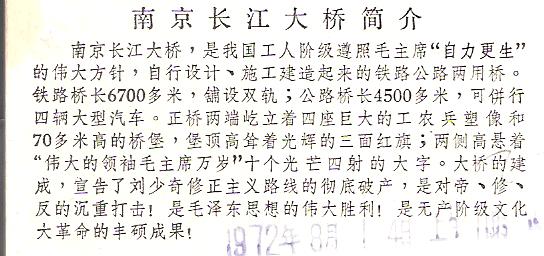 南京长江大桥简介
南京长江大桥，是我国工人阶级遵照毛主席“自力更生”
的伟大方针，自行设计、施工建造起来的铁路公路两用桥。
铁路桥长6700多米，铺设双轨；公路桥长4500多米，可併行
四辆大型汽车。正桥两端屹立着四座巨大的工农兵塑像和
70多米高的桥堡，堡顶高耸着光辉的三面红旗；两侧高悬着
“伟大的领袖毛主席万岁”十个光芒四射的大字。大桥的建
成，宣告了刘少奇修正主义路线的彻底破产，是对帝、修、
反的沉重打击！是毛泽东思想的伟大胜利！是无产阶级文化
大革命的丰硕成果！
1972年8月